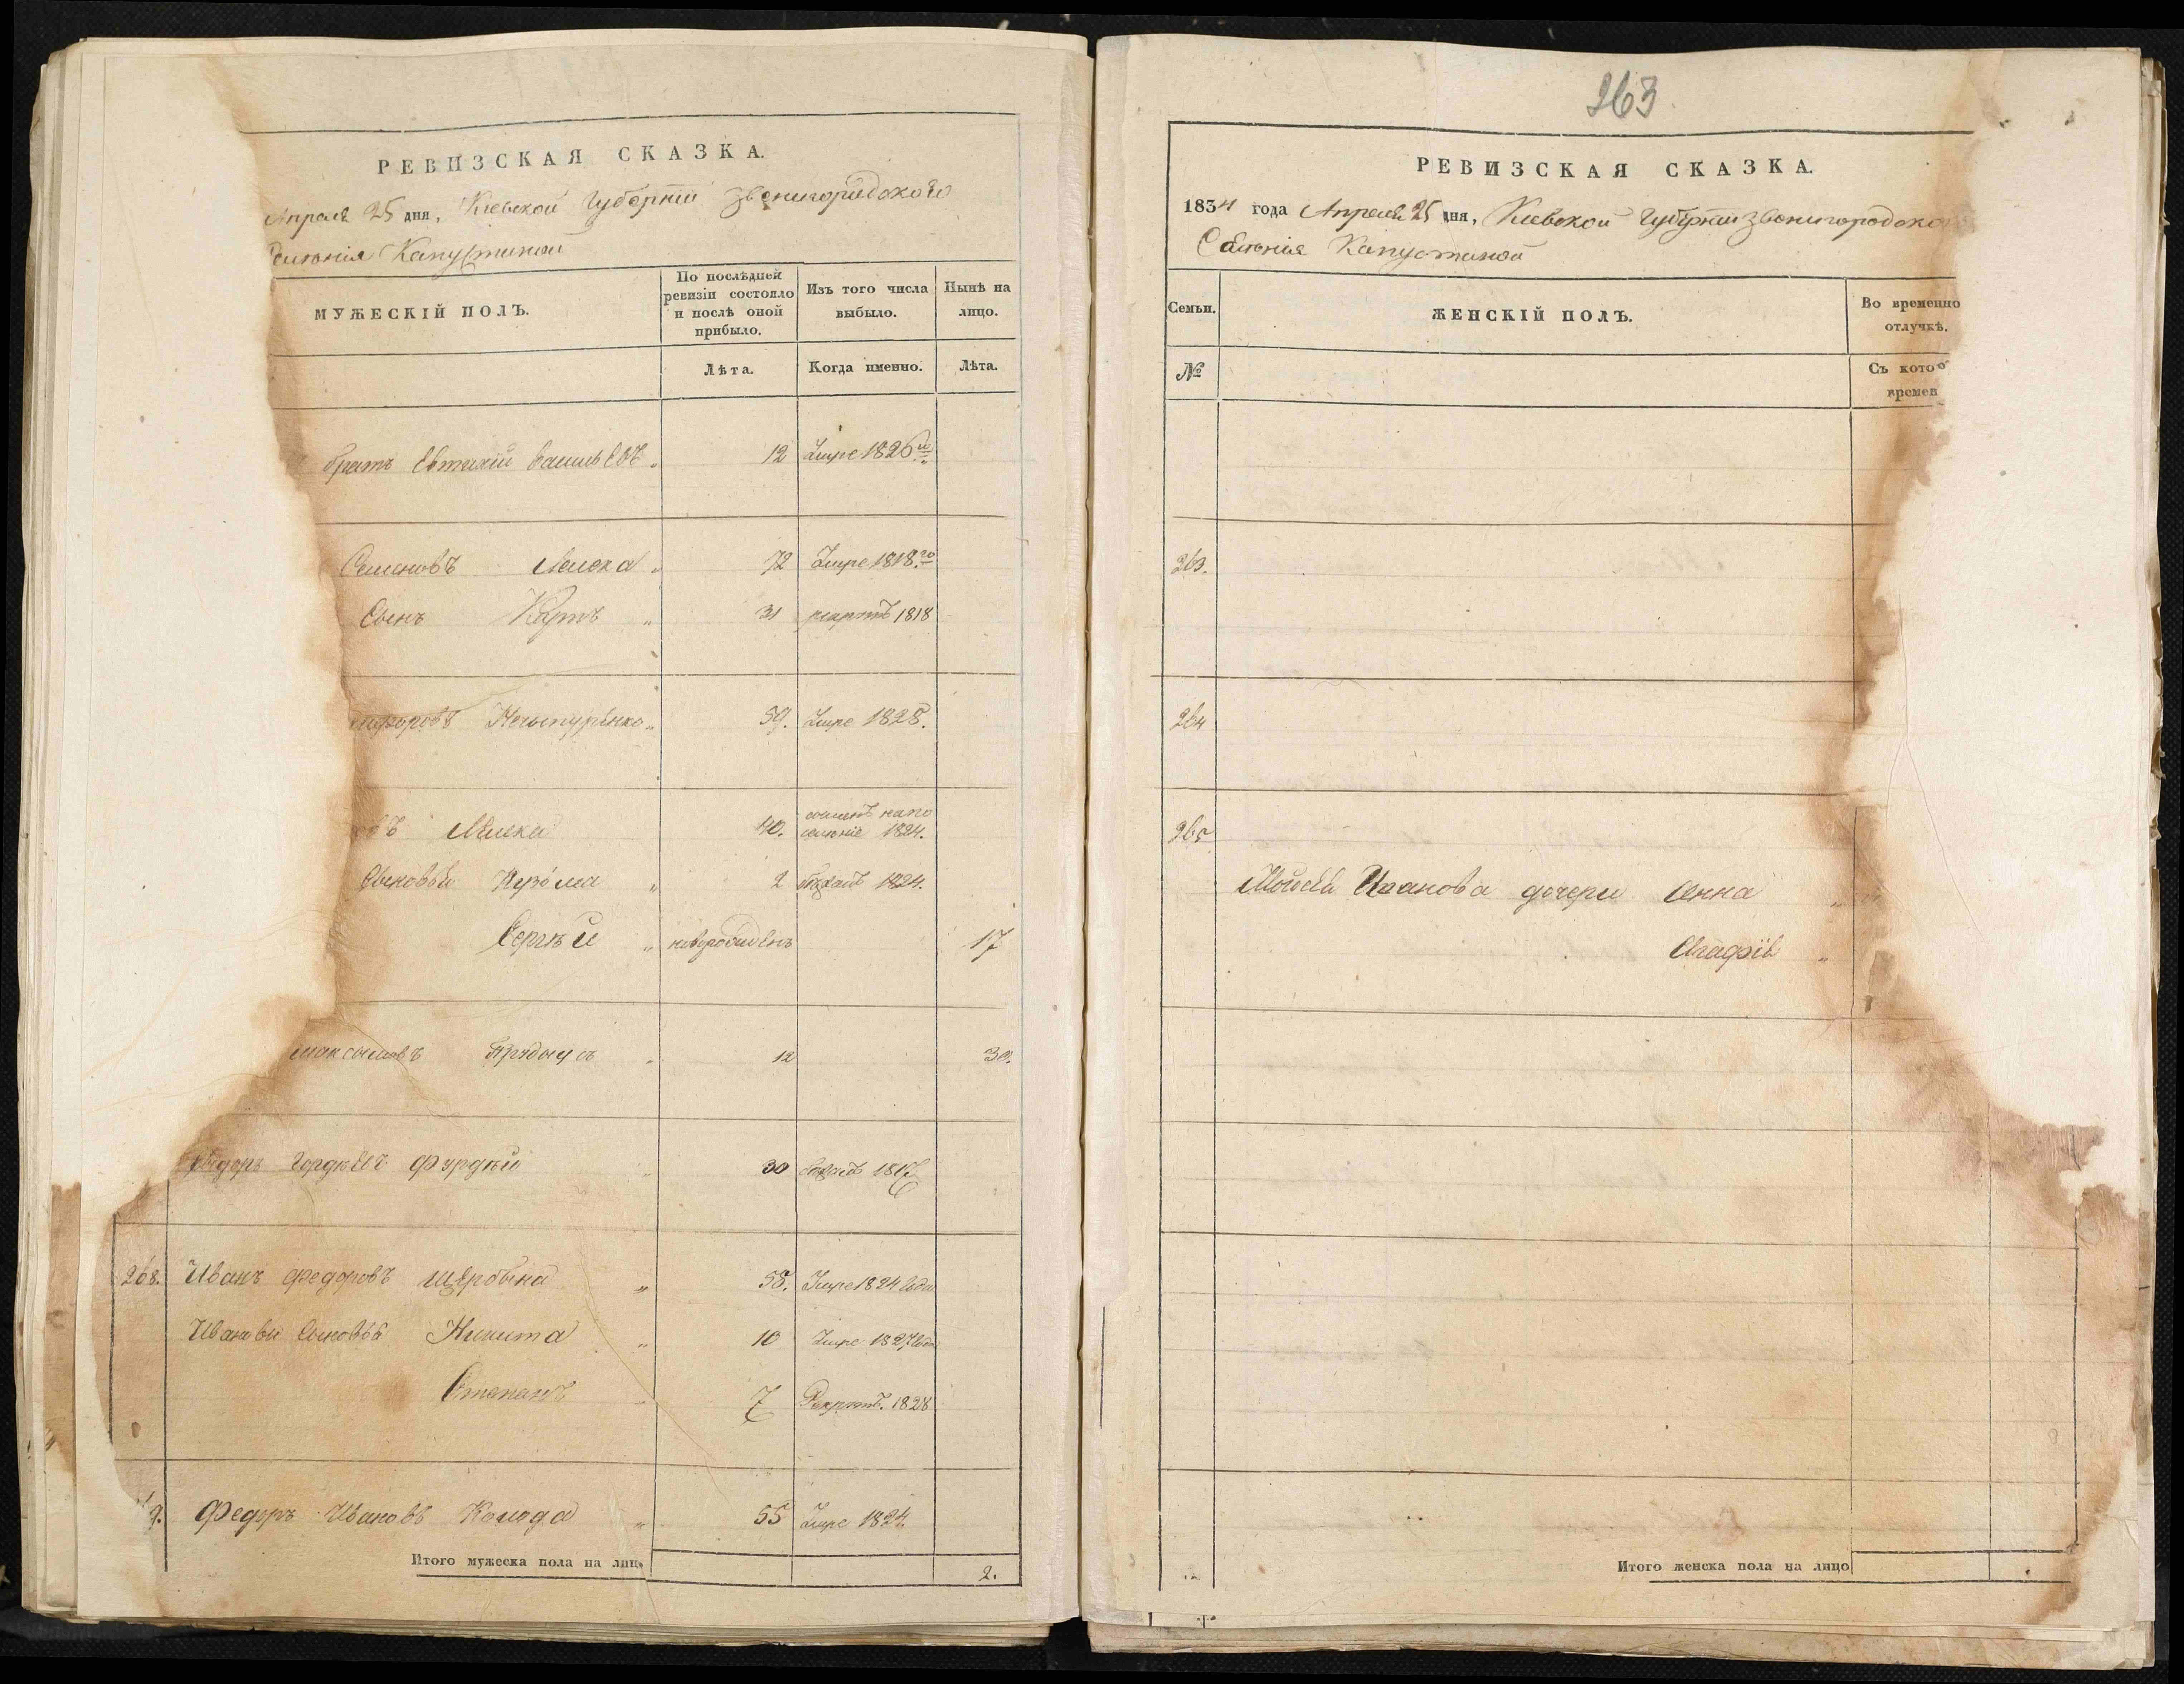 РЕВИЗСКАЯ СКАЗКА.
Апреля 25 дня, Кіевской Губерніи Звенигородского
селенія Капустиной
МУЖЕСКІЙ ПОЛЪ.
По послѣдней ревизіи состояло и послѣ оной прибыло.
Изъ того числа выбыло.
Нынѣ на лицо.
Лѣта.
Когда именно.
Лѣта.
братъ Евтихій Васильевъ 12 Умре 1826
Семеновъ 72 Умре 1818 го
Сынъ 31 рекрутъ 1818
59. Умре 1828.
овъ 40. сосланъ на по
селеніе 1824.
Сыновья 2 бѣжалъ 1824.
Сергѣй новорожденъ 17
Максимовъ 12 30.
Гордѣевъ Фурдѣй 30 1817
268. Иванъ Федоровъ Щербина 58. Умре 1824 года
Ивановы Сыновья Никита 10 Умре 1827 года
Степанъ 7 Рекрутъ. 1828
9. Федоръ Ивановъ Колода 55 Умре 1824
Итого мужеска пола на лицо 2.
263
РЕВИЗСКАЯ СКАЗКА.
1834 года Апреля 25 дня, Кіевской Губерніи Звенигородско
Селенія Капустиной
Семьи.
ЖЕНСКІЙ ПОЛЪ.
Во временно
отлучкѣ.
№
Съ кото
времен
263.
264
265
Мойсѣя Иванова дочери Анна
Агафія
Итого женска пола на лицо